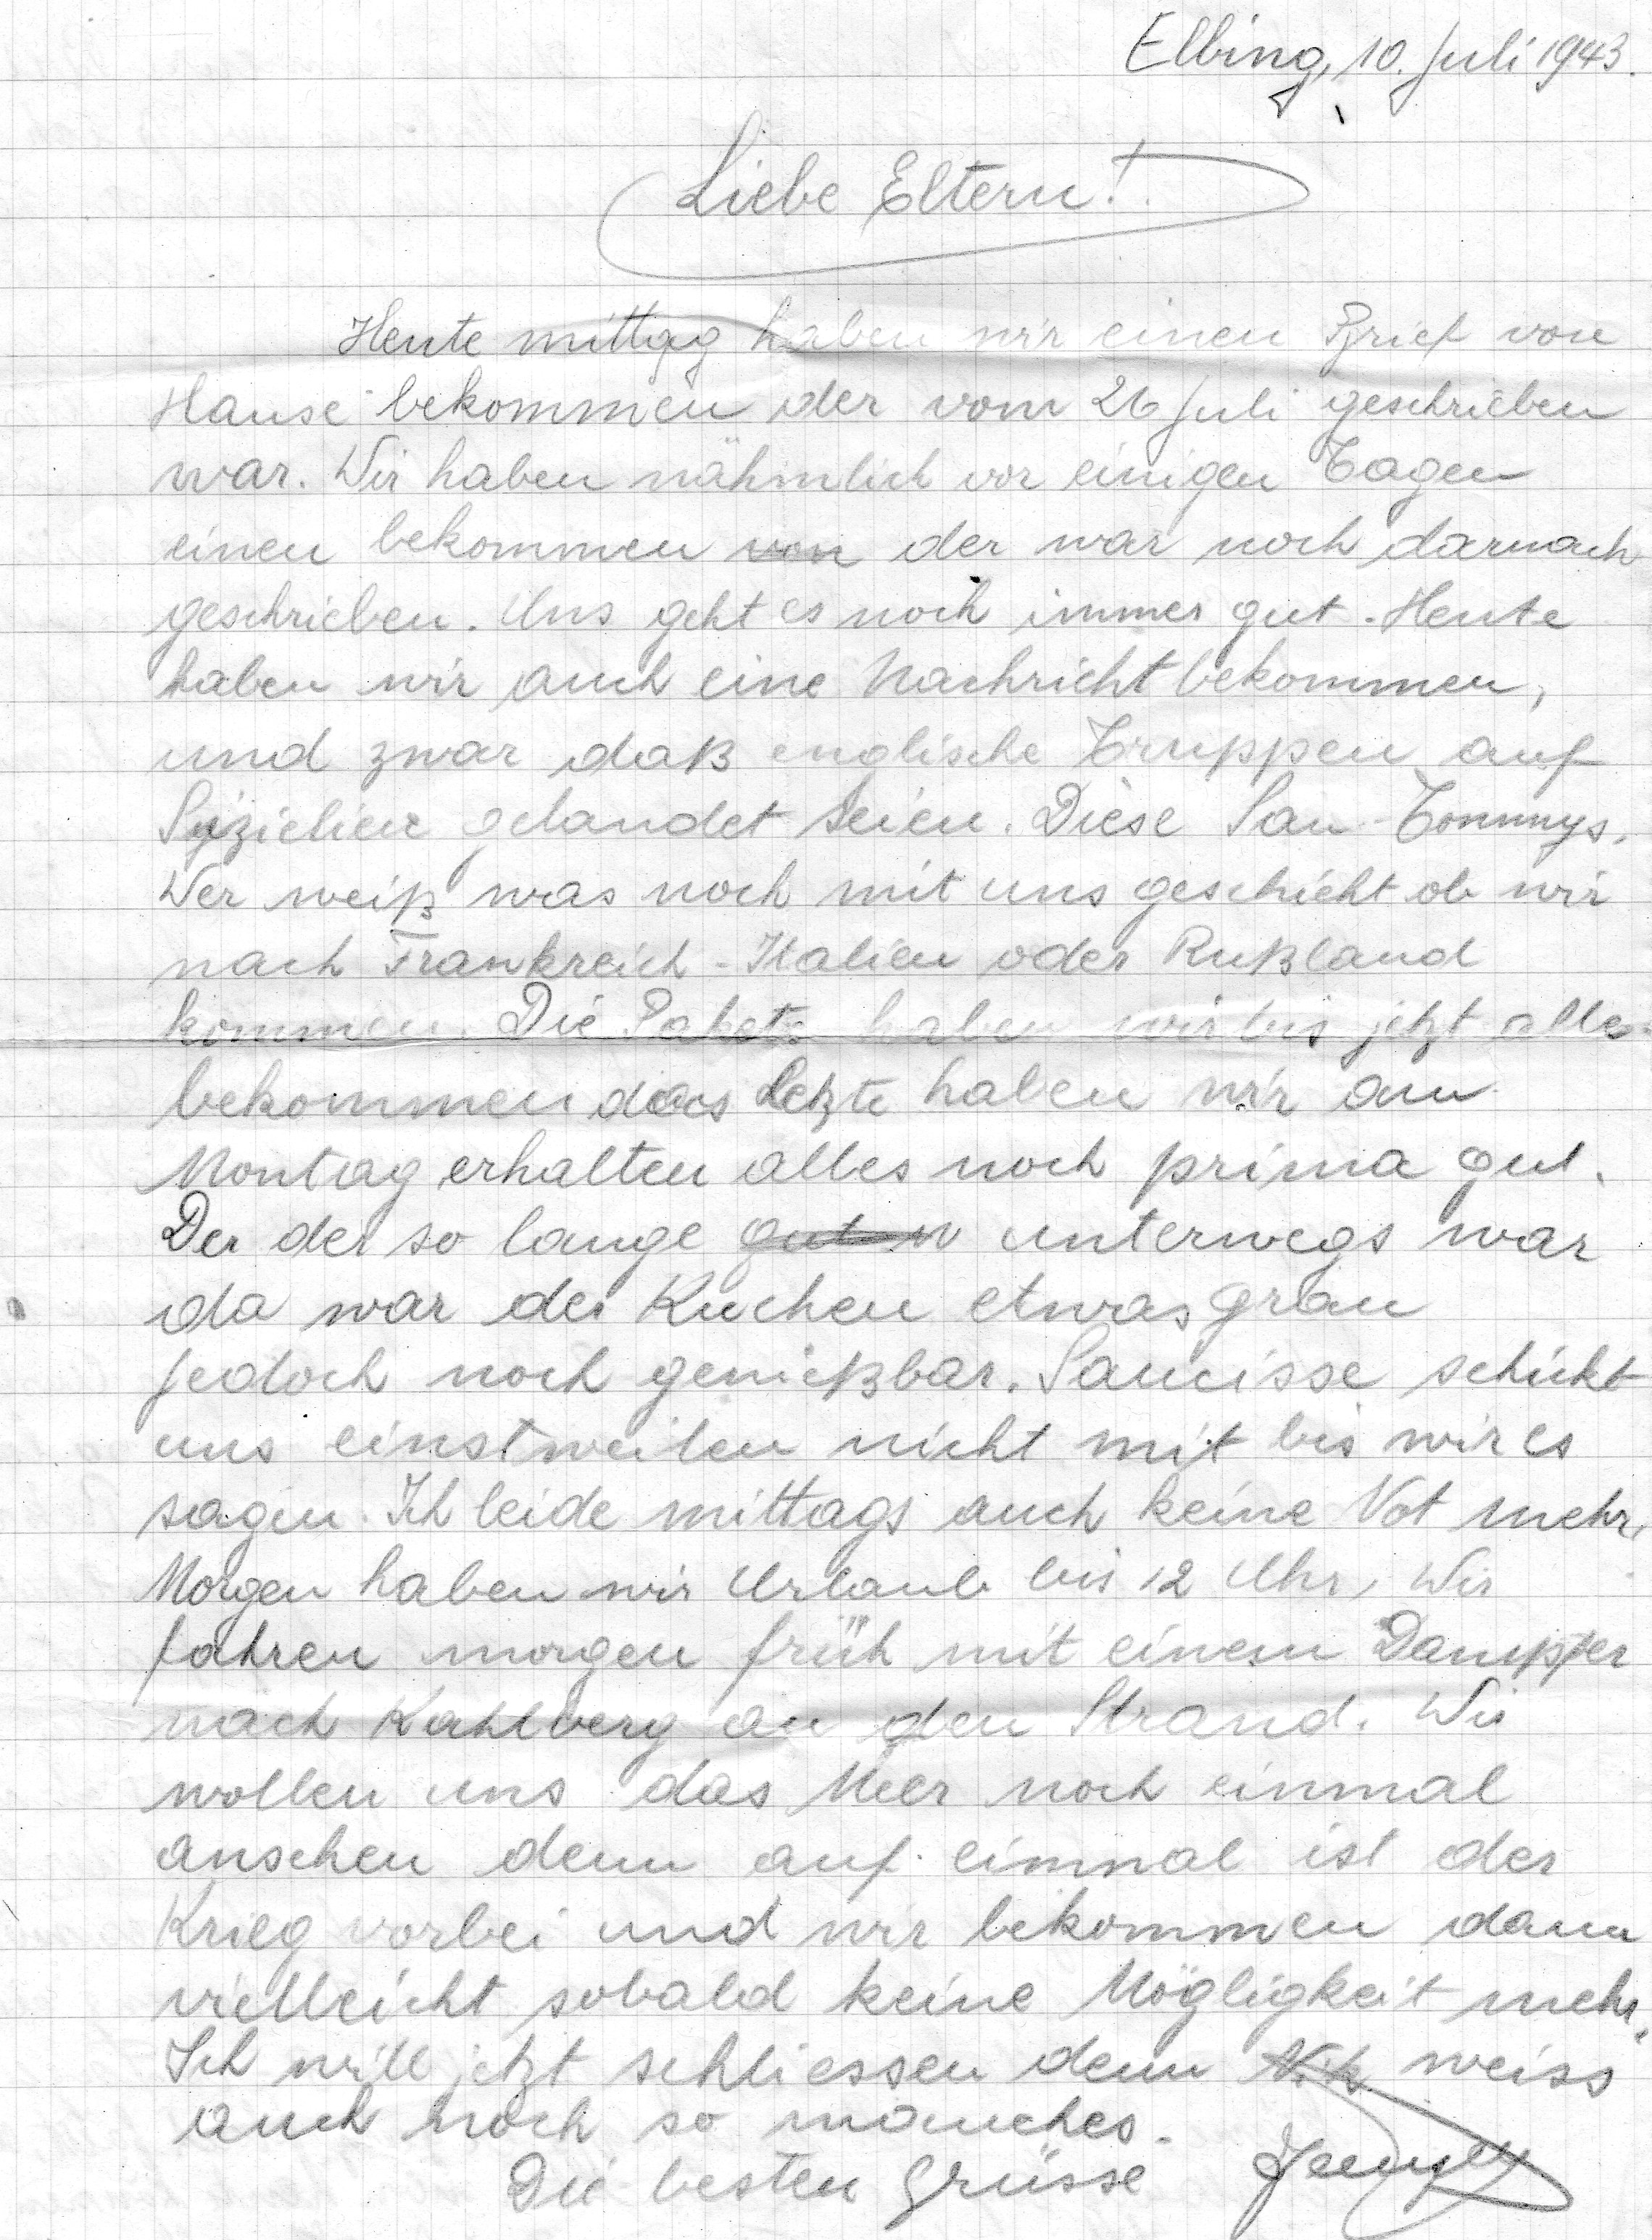 Elbing, 10. Juli 1943.
Liebe Eltern!
Heute mittag haben wir einen Brief von
Hause bekommen der vom 26 Juli geschrieben
war. Wir haben nähmlich vor einigen Tagen
einen bekommen von der war noch darnach
geschrieben. Uns geht es noch immer gut. Heute
haben wir auch eine Nachricht bekommen,
und zwar daß englische Truppen auf
Sizielien gelandet seien. Diese Sau-Tommys.
Wer weiß was noch mit uns geschieht ob wir
nach Frankreich - Italien oder Rußland
kommen. Die Pakete haben wir bis jetzt alle
bekommen das letzte haben wir am
Montag erhalten alles noch prima gut.
Der der so lange unterwegs war
da war der Kuchen etwas grau
jedoch noch genießbar. Saucisse schickt
uns einstweilen nicht mit bis wir es
sagen. Ich leide mittags auch keine Not mehr,
Morgen haben wir Urlaub bis 12 Uhr, Wir
fahren morgen früh mit einem Dampfer
nach Kahlberg an den Strand. Wir
wollen uns das Meer noch einmal
ansehen denn auf eimnal ist der
Krieg vorbei und wir bekommen dann
vielleicht sobald keine Mögligkeit mehr.
Ich will jetzt schliessen denn Nik weiss
auch noch so manches.
Die besten Grüsse